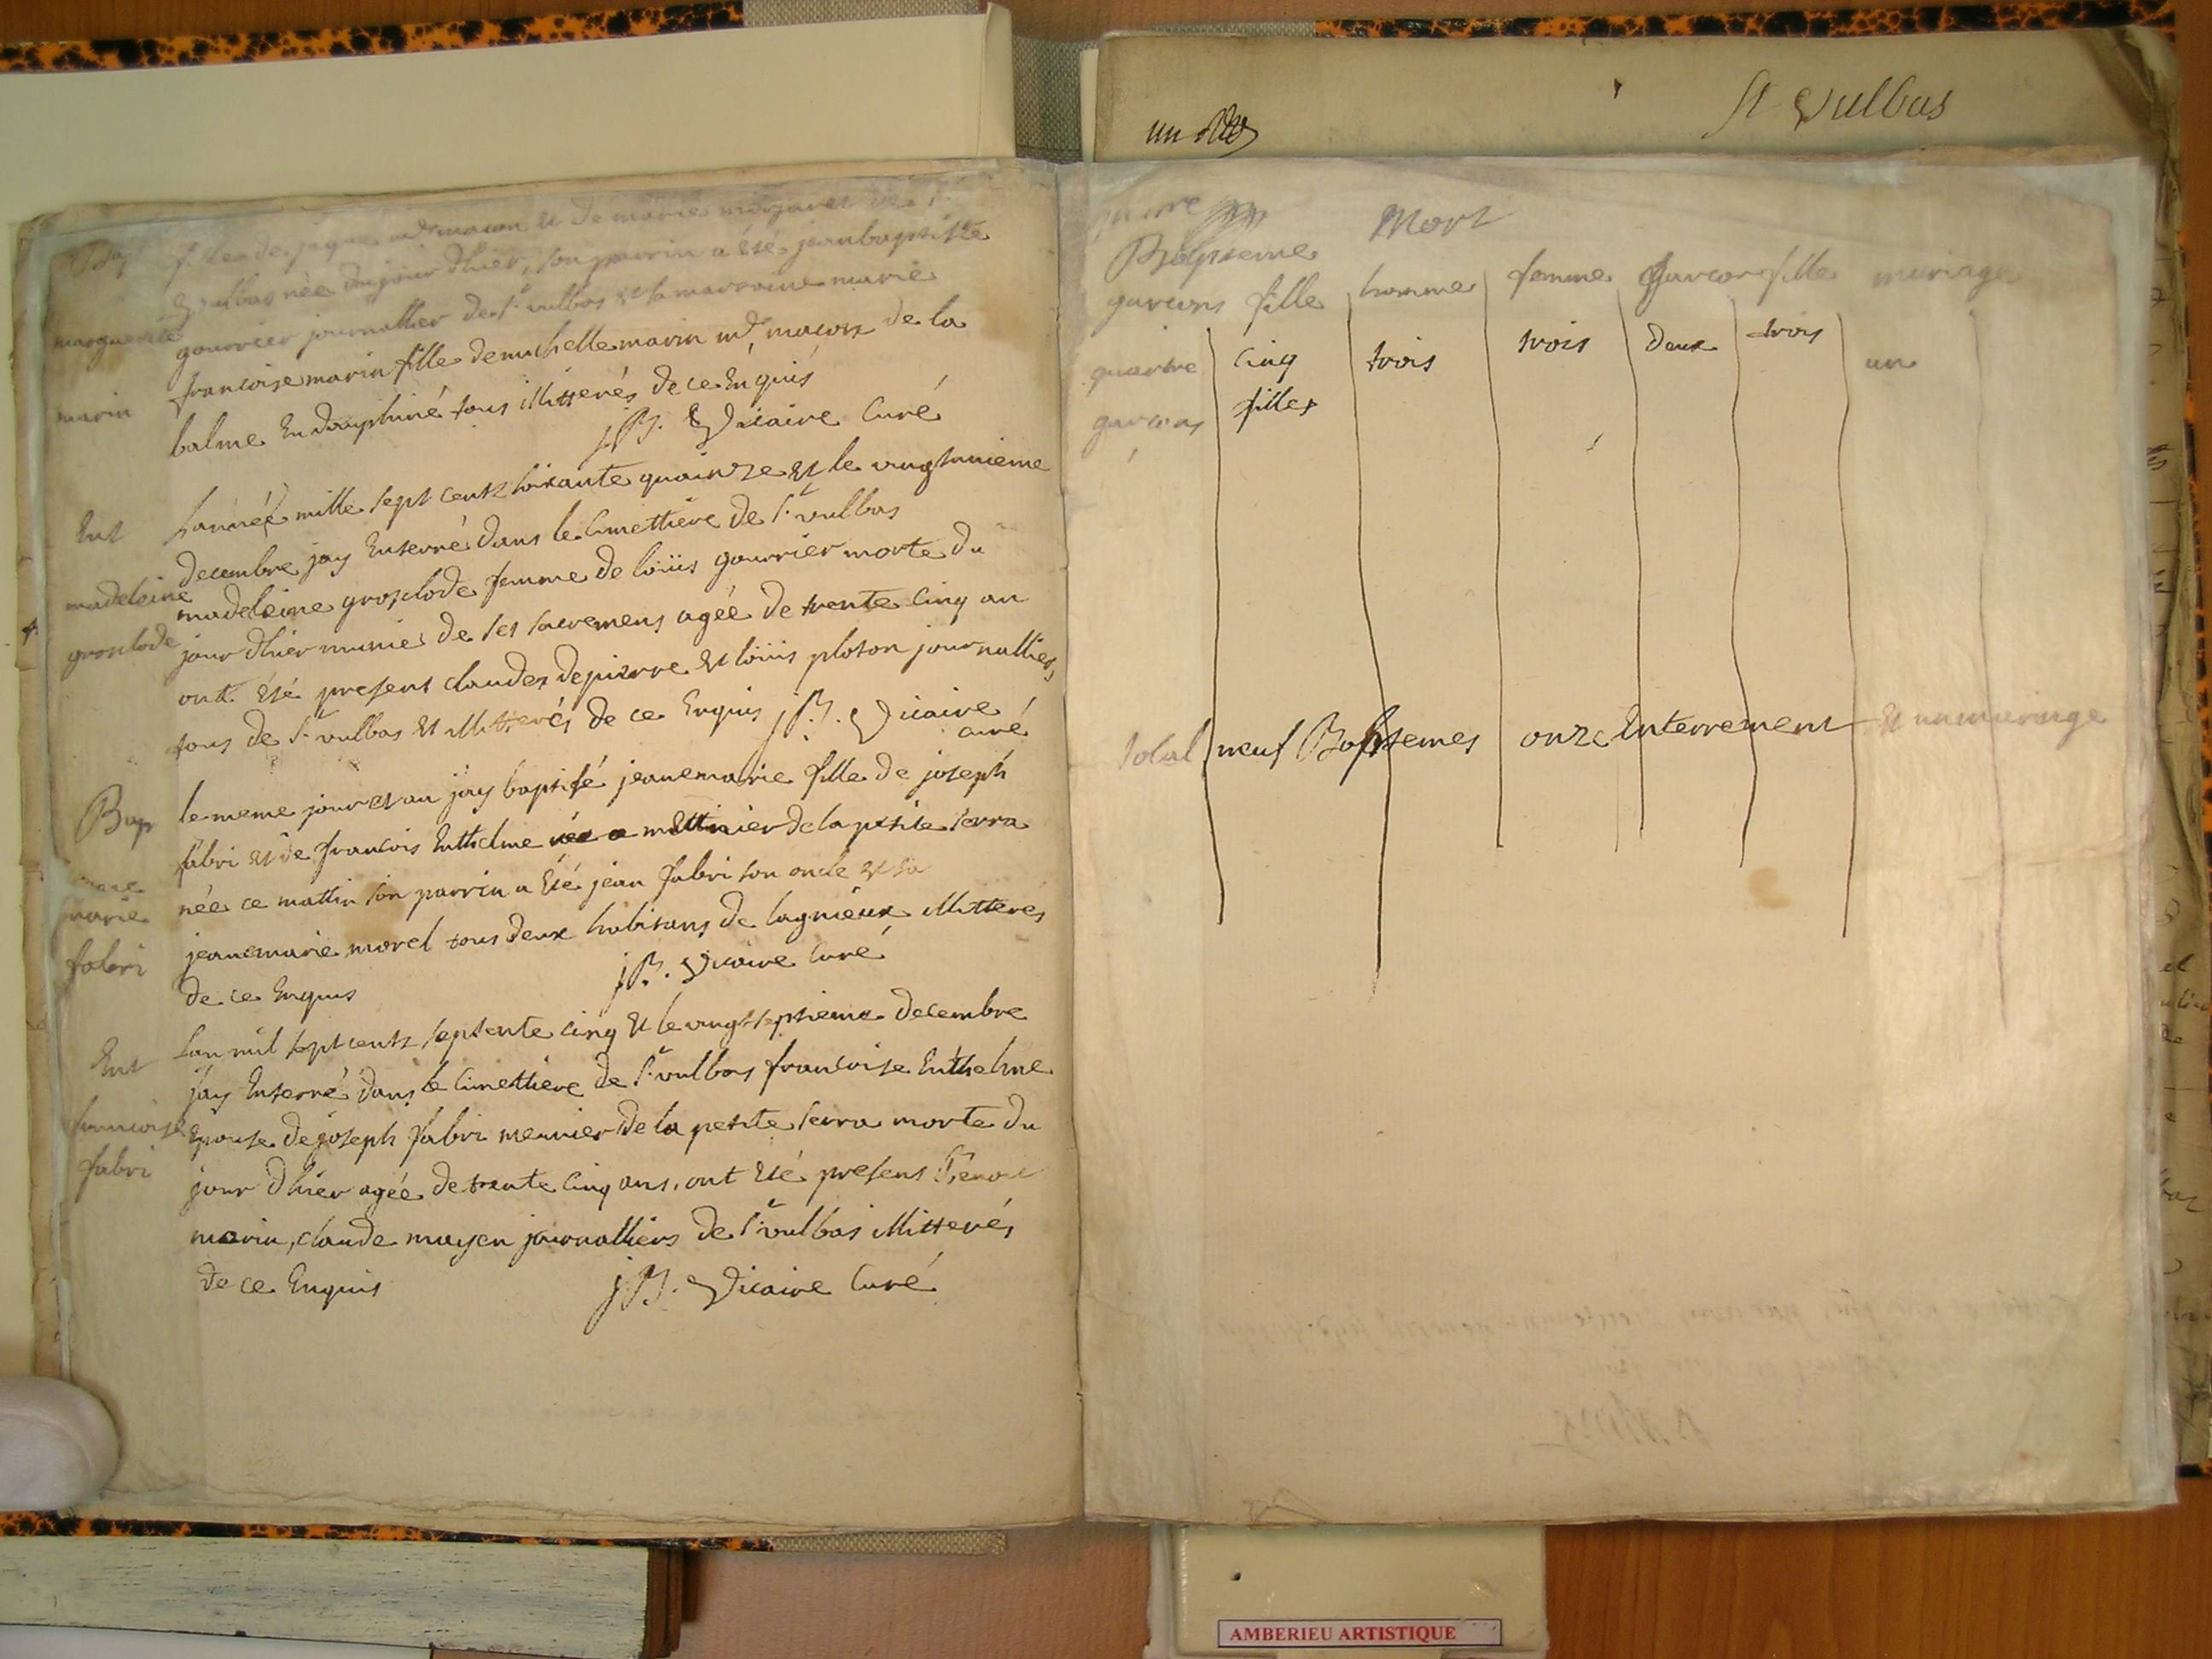 Bap fille de jaque md macon et de marie margaret de St
vulbas née du jour d'hier, son parrin a été jeanbaptiste
marguerite gourrier journallier de St vulbas et la marraine marie
francoise marin fille de michelle marin md macon de la
marin balme En dauphiné tous illitterés de ce Enquis
jB. Vicaire Curé
Ent Lannée mille sept cents soixante quainze et le vingtunieme
decembre jay Enterré dans le Cimettiere de St vulbas
madeleine madeleine grosclode femme de loüis gourrier morte du
grosclode jour d'hier munie de ses sacremens agée de trente Cinq an
ont été presens claudes depierre et loüis ploton journalliers
tous de St vulbas et illitterés de ce Enquis jB. Vicaire
curé
Bap le meme jour et an jay baptisé jeanemarie fille de joseph
fabri et de francois Enthelme meunier de la petite serra
marie née ce mattin son parrin a été jean fabri son oncle et sa
fabri jeanemarie morel tous deux habitans de lagnieux illitterés
de ce Enquis jB. Vicaire Curé
Ent Lan mil sept cents septente cinq et le vingtseptieme decembre
jay Enterré dans le Cimettiere de St vulbas francoise Enthelme
francoise Epouse de joseph fabri meunier de la petite serra morte du
fabri jour d'hier agée de trente Cinq ans, ont été presens
marin, claude mayen journalliers de St vulbas illitterés
de ce Enquis jB. Vicaire Curé
St Vulbas
un
Mort
Baptseme
garcons fille homme femme Garcon fille mariage
quattre Cinq trois trois deux trois un
garcons filles
total neuf Baptsemes onze Enterrement Et un mariage
AMBERIEU ARTISTIQUE